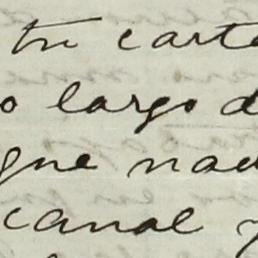 tu carta
o largo d
que nad
canal y